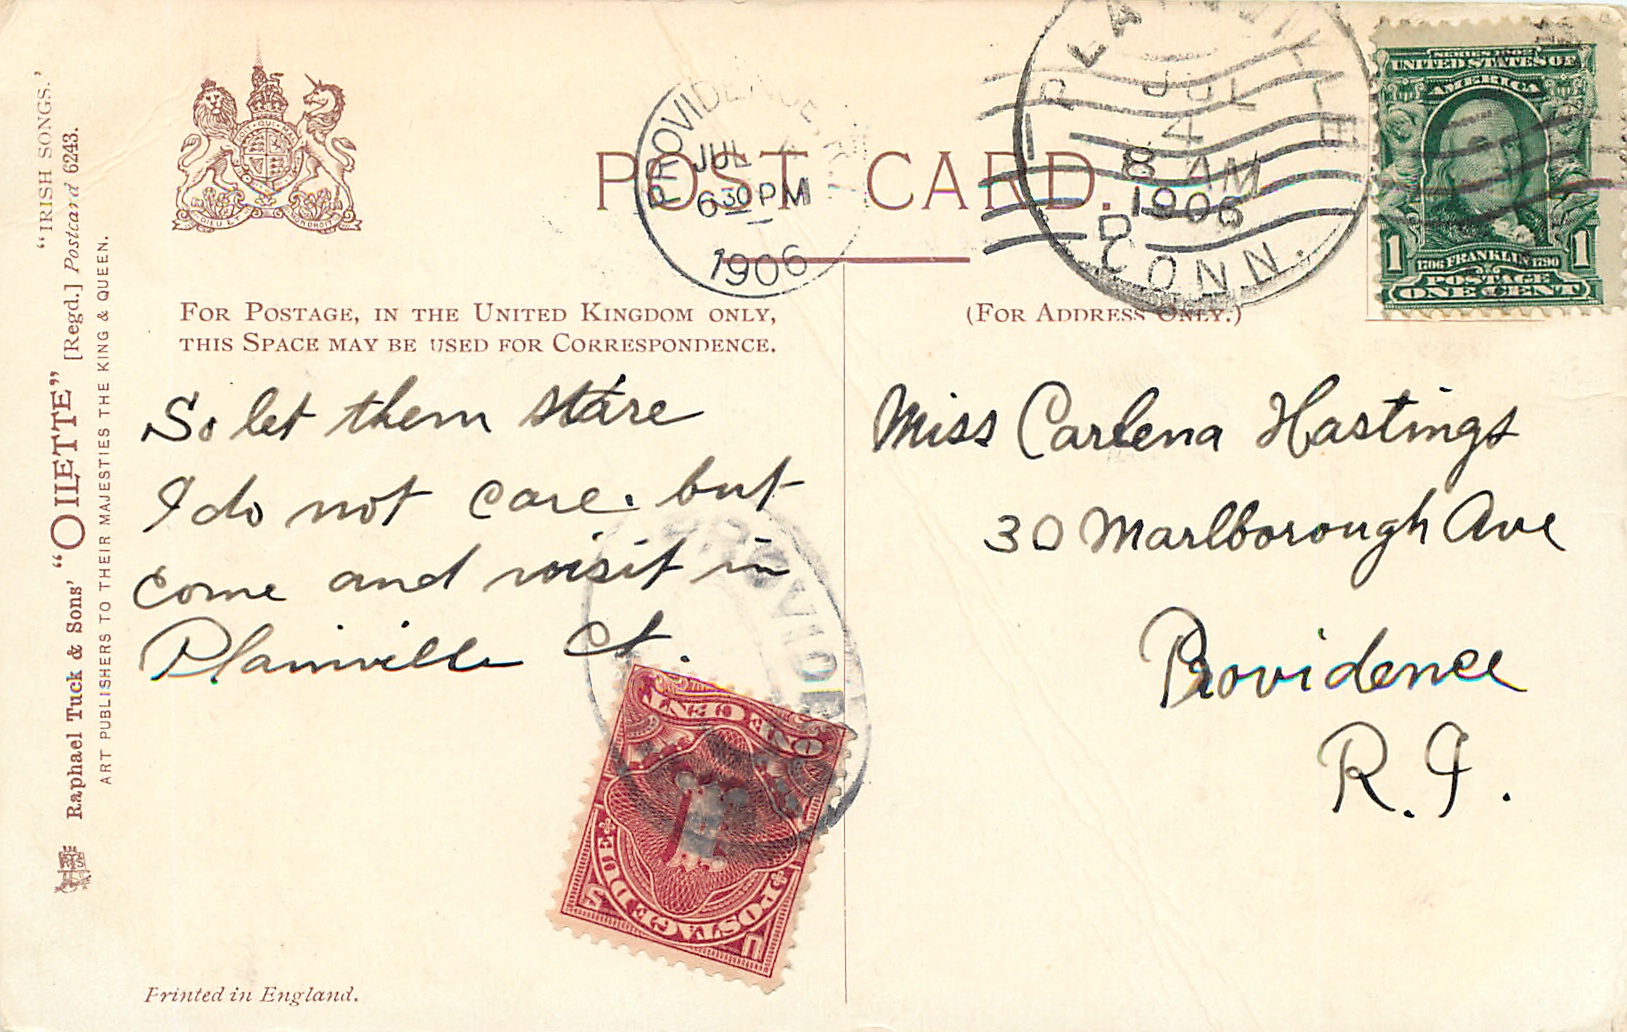 "IRISH SONGS."
Raphael Tuck & Sons' "OILETTE" [Regd.] Postcard 6243.
ART PUBLISHERS TO THEIR MAJESTIES THE KING & QUEEN.
POST CARD.
PROVIDENCE, R.I.
JUL 4
630 PM
1906
PLAINVILLE
JUL
4
8 AM
1906
D
CONN.
SERIES 1902
UNITED STATES OF
AMERICA
1706 FRANKLIN 1790
1 POSTAGE 1
ONE CENT
FOR POSTAGE, IN THE UNITED KINGDOM ONLY,
THIS SPACE MAY BE USED FOR CORRESPONDENCE.
(FOR ADDRESS ONLY.)
So let them stare
I do not care. but
come and visit in
Plainville Ct.
Miss Carlena Hastings
30 Marlborough Ave
Providence
R.I.
PROVIDENCE
ONE CENT
1
POSTAGE DUE
U S
Printed in England.